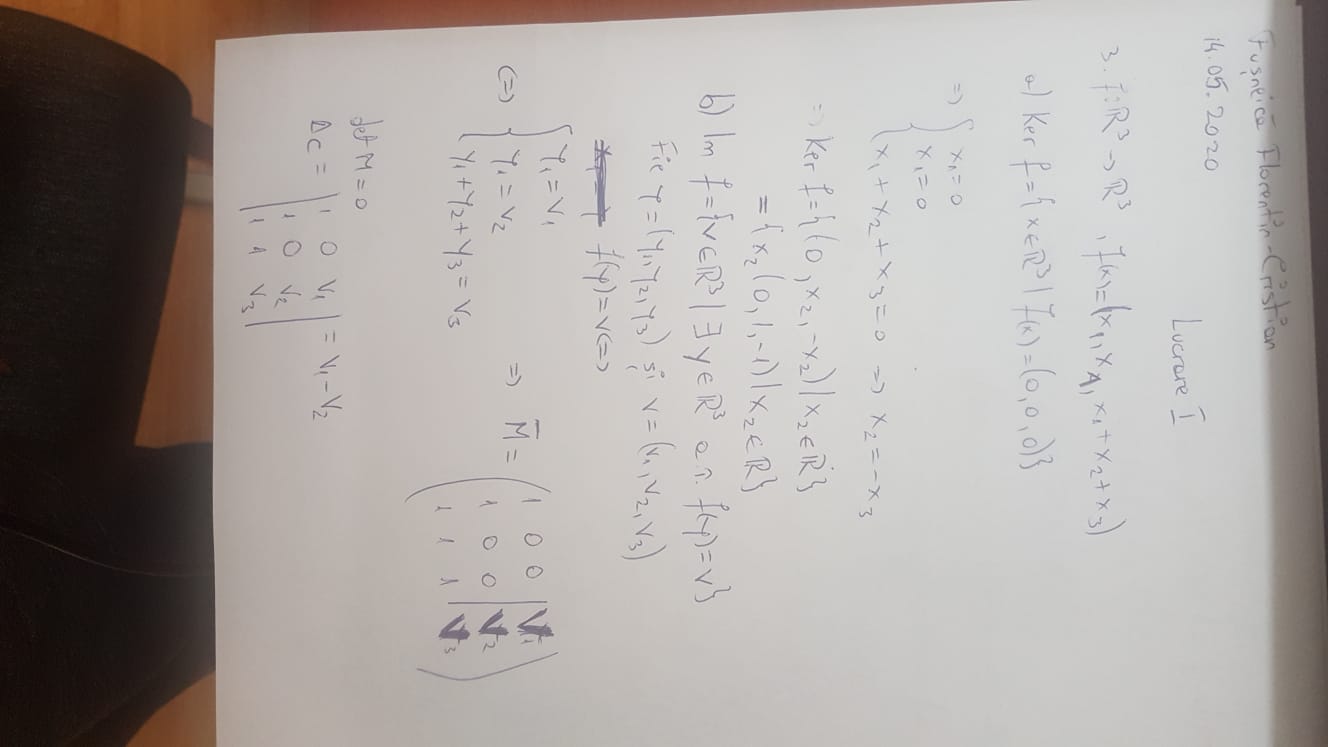 Fușneică Florentin-Cristian
14.05.2020
Lucrare I
3. f:ℝ³ → ℝ³, f(x)=(x₁, x₁, x₁+x₂+x₃)
a) Ker f = { x∈ℝ³ | f(x)=(0,0,0)}
=> { x₁=0
x₁=0
x₁+x₂+x₃=0 => x₂=-x₃
=> Ker f={(0, x₂, -x₂) | x₂∈ℝ}
= { x₂(0,1,-1) | x₂∈ℝ}
b) Im f={v∈ℝ³ | ∃ y∈ℝ³ a.î. f(y)=v}
Fie y=(y₁,y₂,y₃) și v=(v₁,v₂,v₃)
f(y)=v <=>
<=> { y₁=v₁
y₁=v₂
y₁+y₂+y₃=v₃
=> M̅ = ( 1 0 0 | v₁
1 0 0 | v₂
1 1 1 | v₃ )
det M=0
Δc = | 1 0 v₁
1 0 v₂
1 1 v₃ | = v₁-v₂